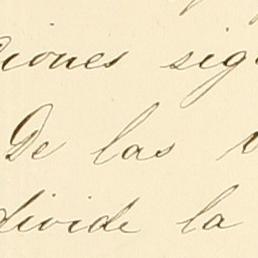 ciones sig
De las
divide la